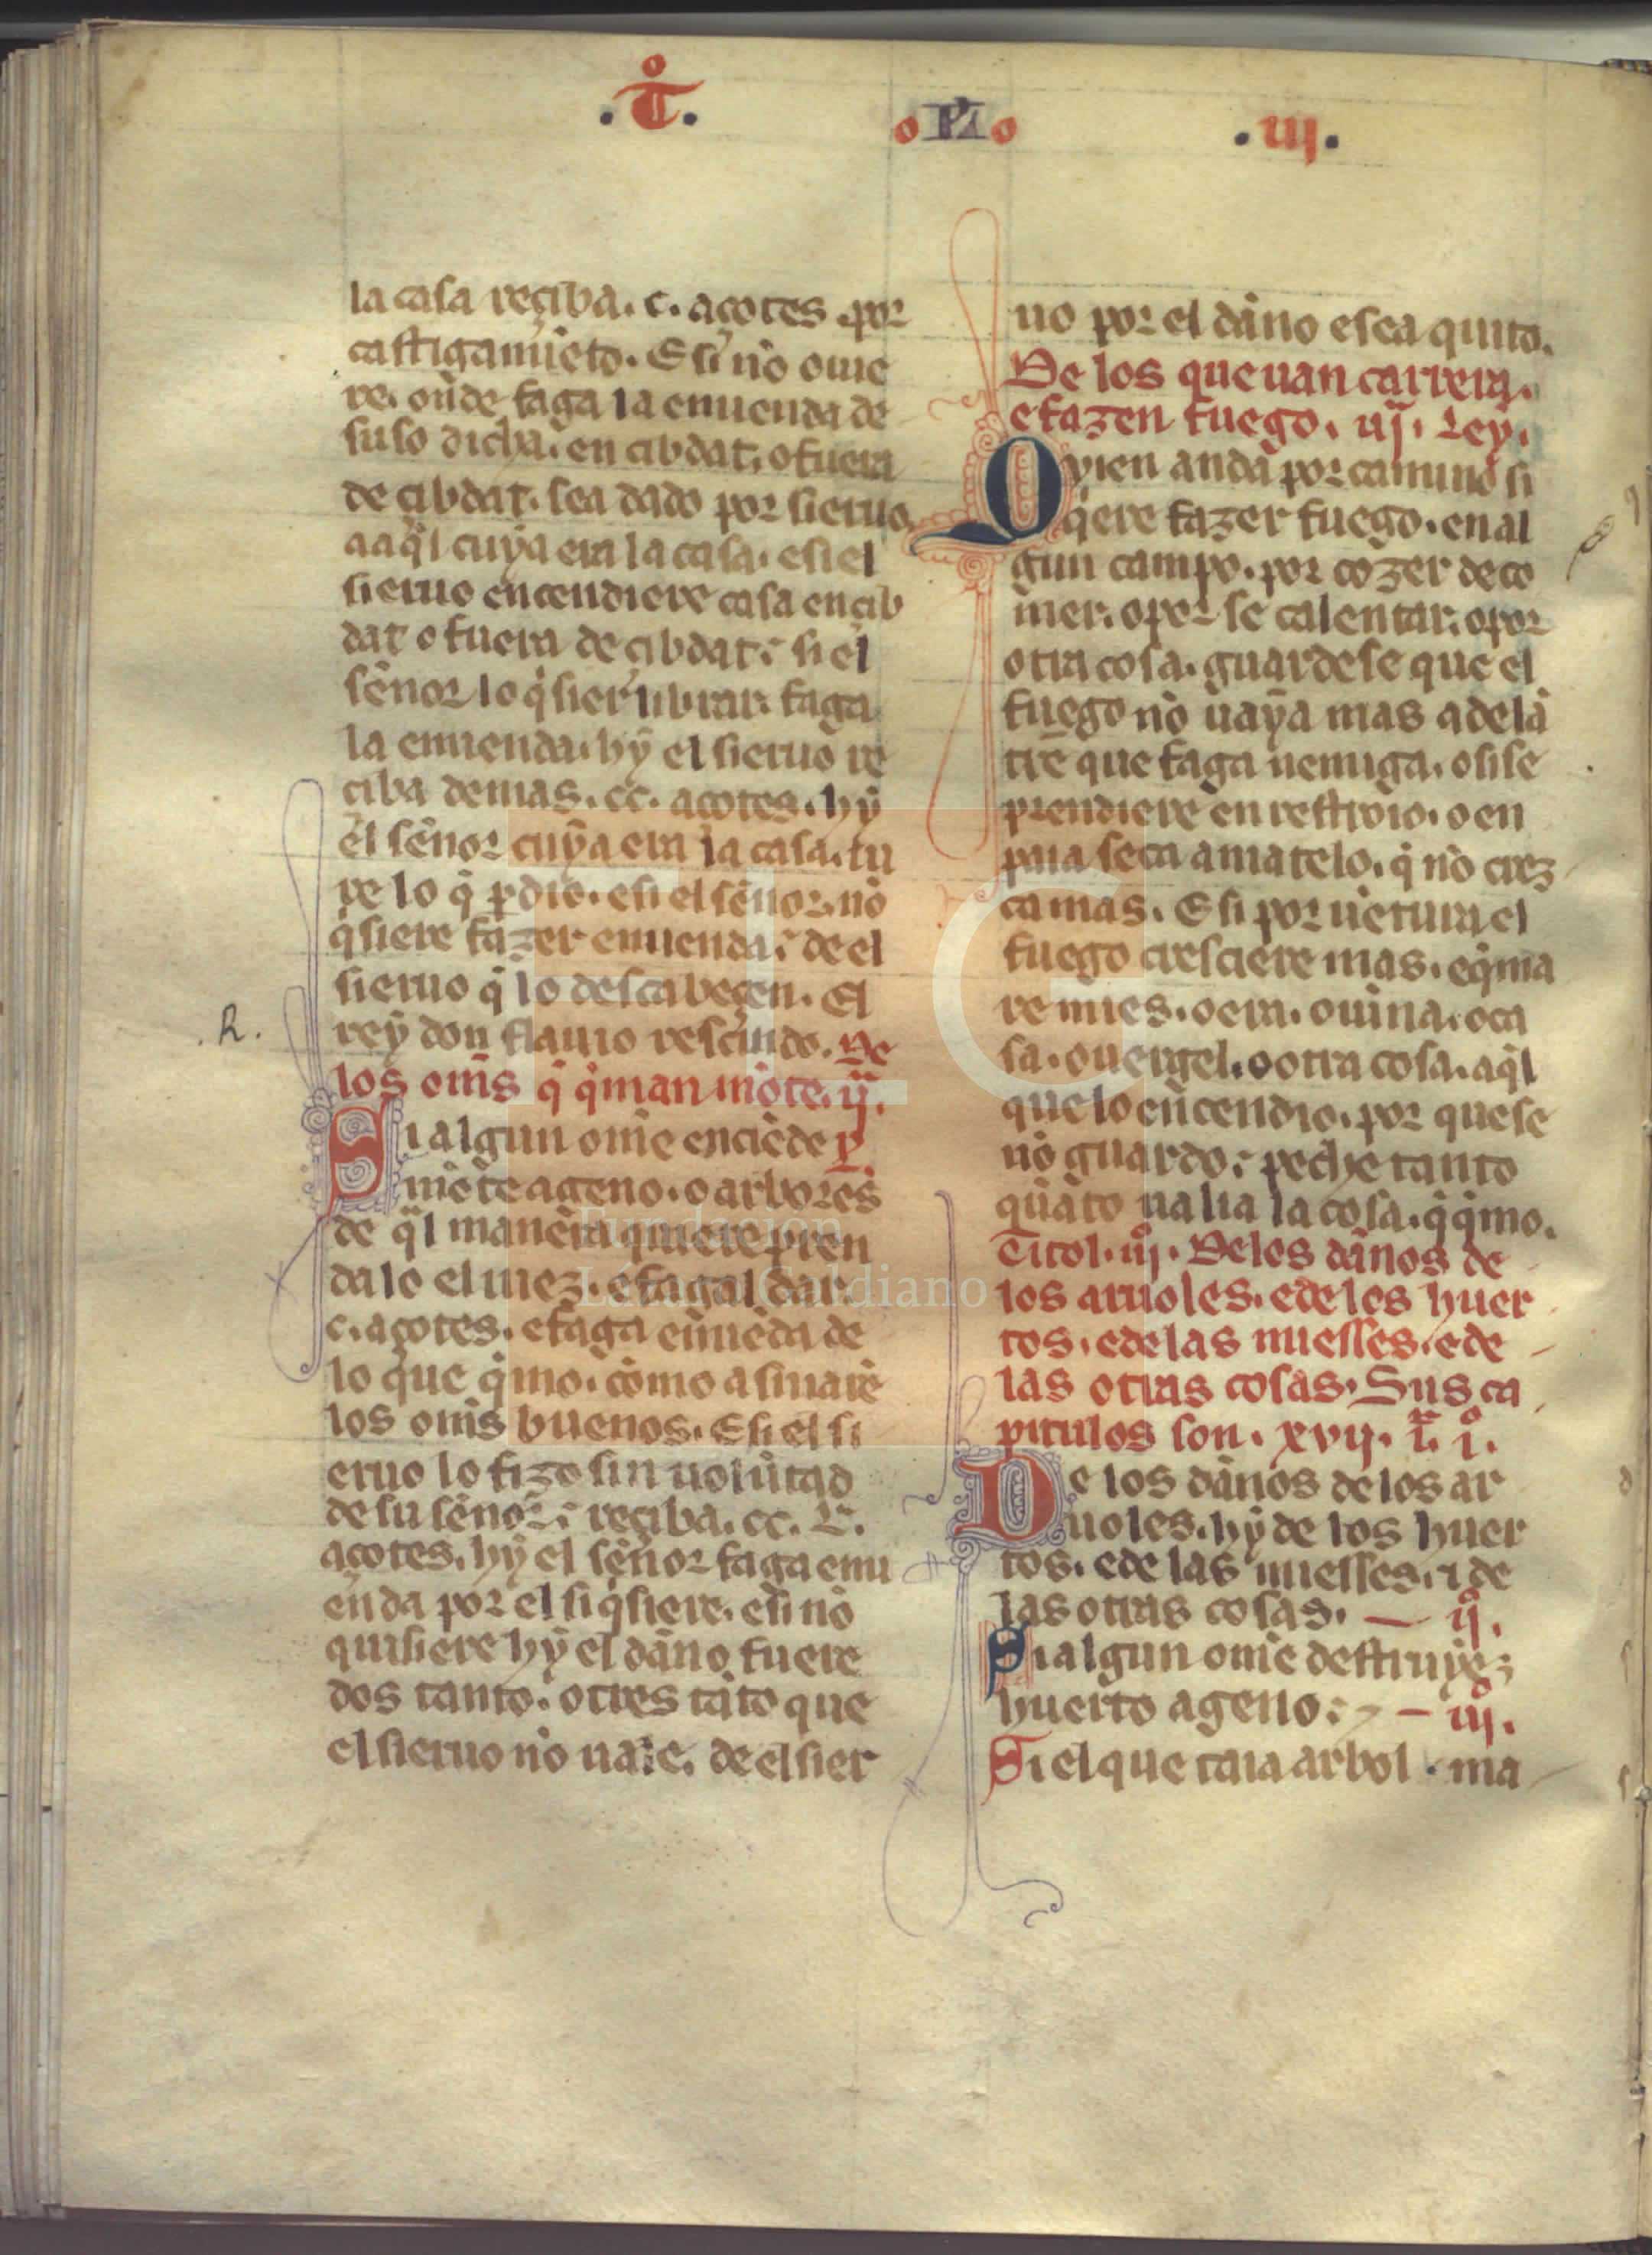 .T̊. .PL. .iij.
la casa reçiba. c. açotes .por
castigamiẽto. E si nõ ouie
re. onde faga la emienda de
suso dicha. en cibdat. o fuera
de çibdat. sea dado por sieruo
a aq̃l cuya era la casa. e si el
sieruo encendiere casa en çib
dat o fuera de çibdat: si el
señor lo q̃sier librar: faga
la emienda. hy el sieruo re
çiba demas. cc. açotes. hy
el señor cuya era la casa. iu
re lo q̃ p̱dio. e si el señor. nõ
q̃siere fazer emienda: de el
sieruo q̃ lo descabeçen. El
rey don flauio resçindo. De
los om̃s q̃ q̃man mõte. ij.
Si algun om̃e enciẽde
mõte ageno. o arbores
de q̃l manera quiere pren
dalo el iuez. e fagal dar.
c. açotes. e faga emiẽda de
lo que q̃mo. como asmarẽ
los om̃s buenos. E si el si
eruo lo fizo sin uolũtad
de su señor: reçiba. cc. L.
açotes. hy el señor faga emi
enda por el si q̃siere. e si nõ
quisiere hy el daño fuere
dos tanto. o tres tãto que
el sieruo nõ uale. de el sier
R.
uo por el daño e sea quito.
De los que uan carrera.
e fazen fuego. iij. Ley.
Qvien anda por camino si
q̃ere fazer fuego. en al
gun campo. por cozer de co
mer. o por se calentar. o por
otra cosa. guardese que el
fuego nõ uaya mas adelã
tre que faga nemiga. o si se
prendiere en restroio. o en
paia seca amatelo. q̃ nõ crez
ca mas. E si por uẽtura el
fuego cresciere mas. e q̃ma
re mies. o era. o uiña. o ca
sa. o uergel. o otra cosa. aq̃l
que lo encendio. por que se
nõ guardo: peche tanto
quãto ualia la cosa. q̃ q̃mo.
Titol. iij. De los daños de
los aruoles. e de los huer
tos. e de las miesses. e de
las otras cosas. Sus ca
pitulos son. xvij. L. i.
De los daños de los ar
uoles. hy de los huer
tos. e de las miesses. ⁊ de
las otras cosas. — ij.
Si algun om̃e destruye
huerto ageno: — iij.
Si el que taia arbol . ma